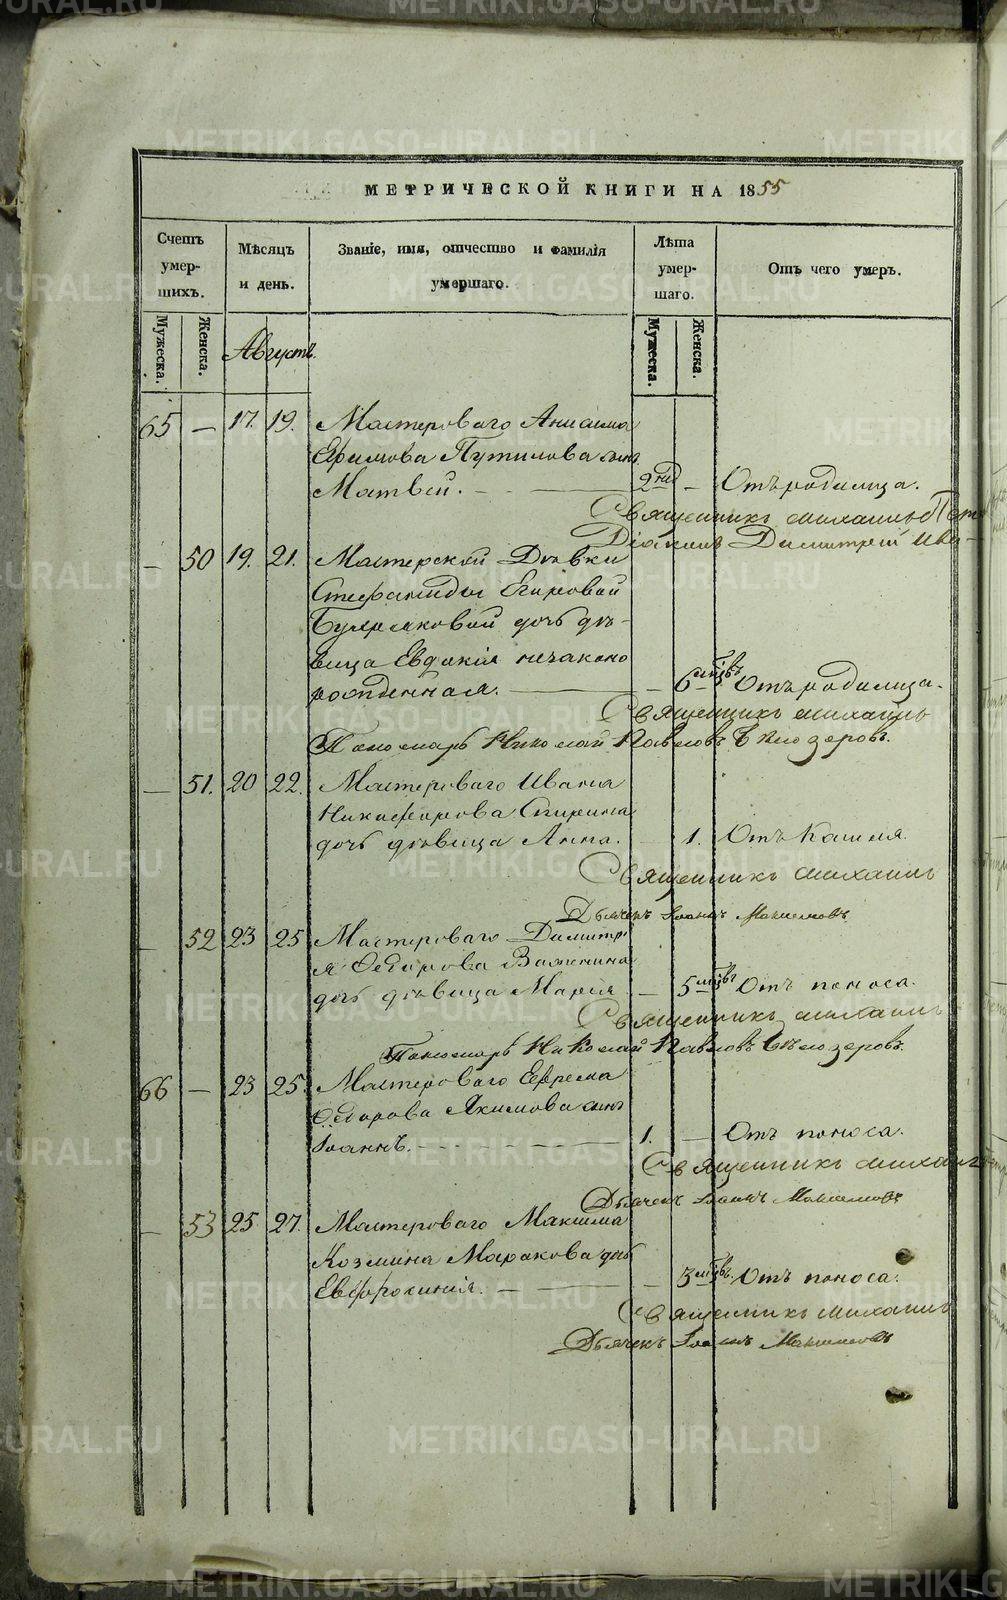 МЕТРИЧЕСКОЙ КНИГИ НА 1855
Счетъ умер-шихъ.
Мѣсяцъ и день.
Званіе, имя, отчество и фамилія умершаго.
Лѣта умер-шаго.
Отъ чего умеръ.
Мужеска.
Женска.
Августъ.
Мужеска.
Женска.
65 — 17. 19. Мастероваго Анисима
Ефимова Путилова сынъ
Матвей. — 2 нед — Отъ родимца.
Священникъ Михаилъ
Діаконъ Димитрій
— 50 19. 21. Мастерской Дѣвки
Стефаниды Егоровой
дочь дѣ-
вица Евдокія незаконо
рожденная. — 6 мцвъ Отъ родимца.
Священникъ Михаилъ
Пономарь Николай Павловъ Бѣлозеровъ.
— 51. 20 22. Мастероваго Ивана
Никифорова Спирина
дочь дѣвица Анна. 1. Отъ Кашля.
Священникъ Михаилъ
Дьячекъ Іоаннъ Максимовъ
— 52 23 25 Мастероваго Димитрі
я Ѳедорова Важенина
дочь дѣвица Марія — 5 мцвъ Отъ поноса.
Священникъ Михаилъ
Пономарь Николай Павловъ Бѣлозеровъ.
66 — 23 25. Мастероваго Ефрема
Ѳедорова Якимова сынъ
Іоаннъ. — 1. — Отъ поноса.
Священникъ Михаилъ
Дьячекъ Іоаннъ Максимовъ
— 53 25 27. Мастероваго Максима
Козмина Маракова дочь
Евфросинія. — 3 мцвъ. Отъ поноса.
Священникъ Михаилъ
Дьячекъ Іоаннъ Максимовъ
METRIKI.GASO-URAL.RU